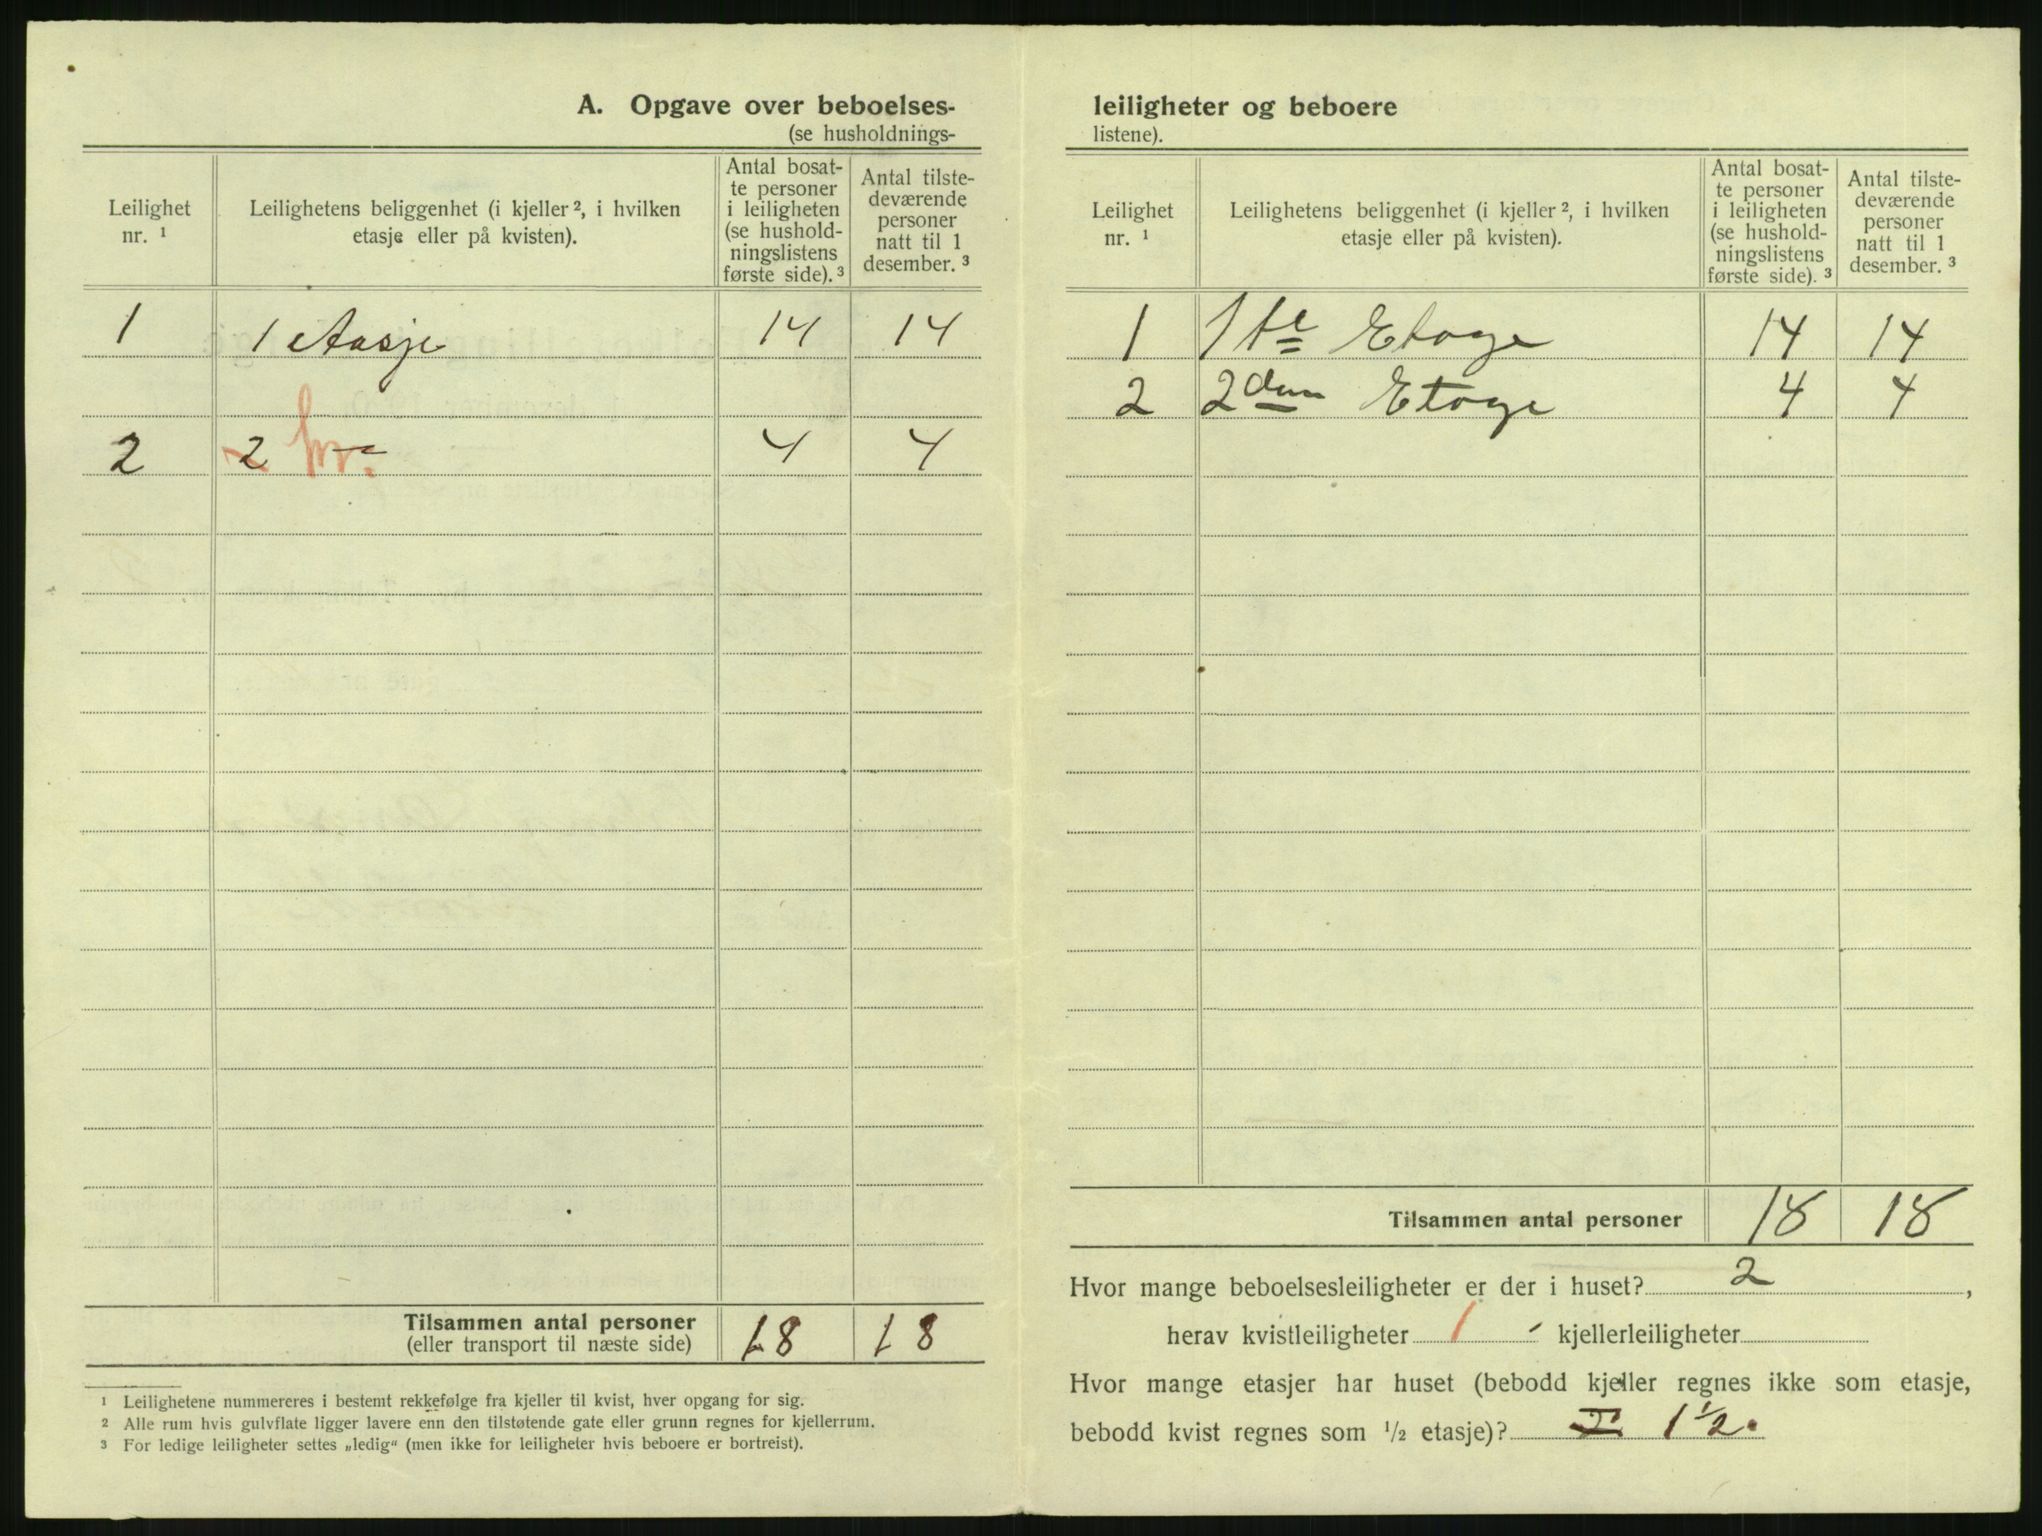 A. Opgave over beboelses-
(se husholdnings-
Leilighet nr. 1
Leilighetens beliggenhet (i kjeller 2, i hvilken
etasje eller på kvisten).
Antal bosat-
te personer
i leiligheten
(se hushold-
ningslistens
første side). 3
Antal tilste-
deværende
personer
natt til 1
desember. 3
1 1 Aasje 14 14
2 2 4 4
Tilsammen antal personer 18 18
(eller transport til næste side)
1 Leilighetene nummereres i bestemt rekkefølge fra kjeller til kvist, hver opgang for sig.
2 Alle rum hvis gulvflate ligger lavere enn den tilstøtende gate eller grunn regnes for kjellerrum.
3 For ledige leiligheter settes „ledig“ (men ikke for leiligheter hvis beboere er bortreist).
leiligheter og beboere
listene).
Leilighet nr. 1
Leilighetens beliggenhet (i kjeller 2, i hvilken
etasje eller på kvisten).
Antal bosat-
te personer
i leiligheten
(se hushold-
ningslistens
første side). 3
Antal tilste-
deværende
personer
natt til 1
desember. 3
1 1te Etage 14 14
2 2den Etage 4 4
Tilsammen antal personer 18 18
Hvor mange beboelsesleiligheter er der i huset? 2,
herav kvistleiligheter 1 kjellerleiligheter
Hvor mange etasjer har huset (bebodd kjeller regnes ikke som etasje,
bebodd kvist regnes som 1/2 etasje)? 1 1/2.